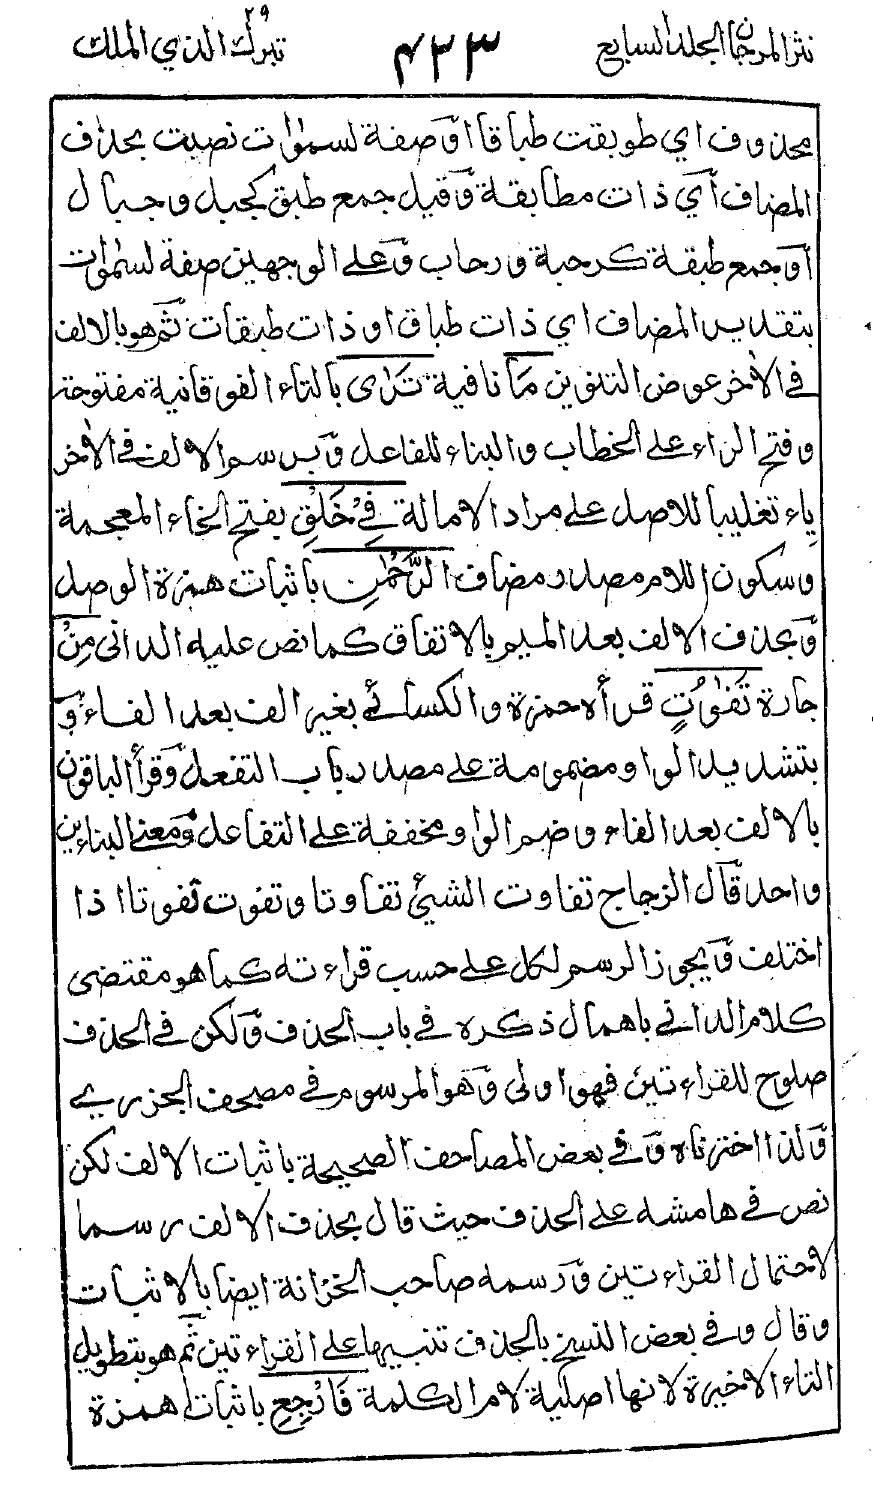 نثر المرجان الجلد السابع ۴۲۳ تبرك الذي الملك ۲۹
محذوف اي طوبقت طباقا او صفة لسموٰت نصبت بحذف
المضاف أي ذات مطابقة وقيل جمع طبق كجبل وجبال
او جمع طبقة كرحبة ورحاب وعلى الوجهين صفة لسمٰوٰت
بتقدير المضاف اي ذات طباق او ذات طبقات ثم هو بالالف
في الاٰخر عوض التنوين مَا نافية تَرٰى بالتاء الفوقانية مفتوحة
وفتح الراء على الخطاب والبناء للفاعل وبرسم الالف في الاٰخر
ياء تغليبا للاصل على مراد الامالة فِيْ خَلْقِ بفتح الخاء المعجمة
وسكون اللام مصدر مضاف الرَّحْمٰنِ باثبات همزة الوصل
وبحذف الالف بعد الميم بالاتفاق كما نص عليه الداني مِنْ
جارة تَفٰوُتٍ قرأه حمزة والكسائي بغير الف بعد الفاء و
بتشديد الواو مضمومة على مصدر باب التفعل وقرأ الباقون
بالالف بعد الفاء وضم الواو مخففة على التفاعل ومعنى البناءين
واحد قال الزجاج تفاوت الشيئ تفاوتا وتفوت تفوتا اذا
اختلف ويجوز الرسم لكل على حسب قراءته كما هو مقتضى
كلام الداني باهمال ذكره في باب الحذف ولكن في الحذف
صلوح للقراءتين فهو اولى وهو المرسوم في مصحف الجزري
ولذا اخترناه وفي بعض المصاحف الصحيحة باثبات الالف لكن
نص في هامشه على الحذف حيث قال بحذف الالف رسما
لاحتمال القراءتين ورسمه صاحب الخزانة ايضا بالاثبات
وقال وفي بعض النسخ بالحذف تنبيها على القراءتين ثم هو بتطويل
التاء الاخيرة لانها اصلية لام الكلمة فَارْجِعِ باثبات همزة